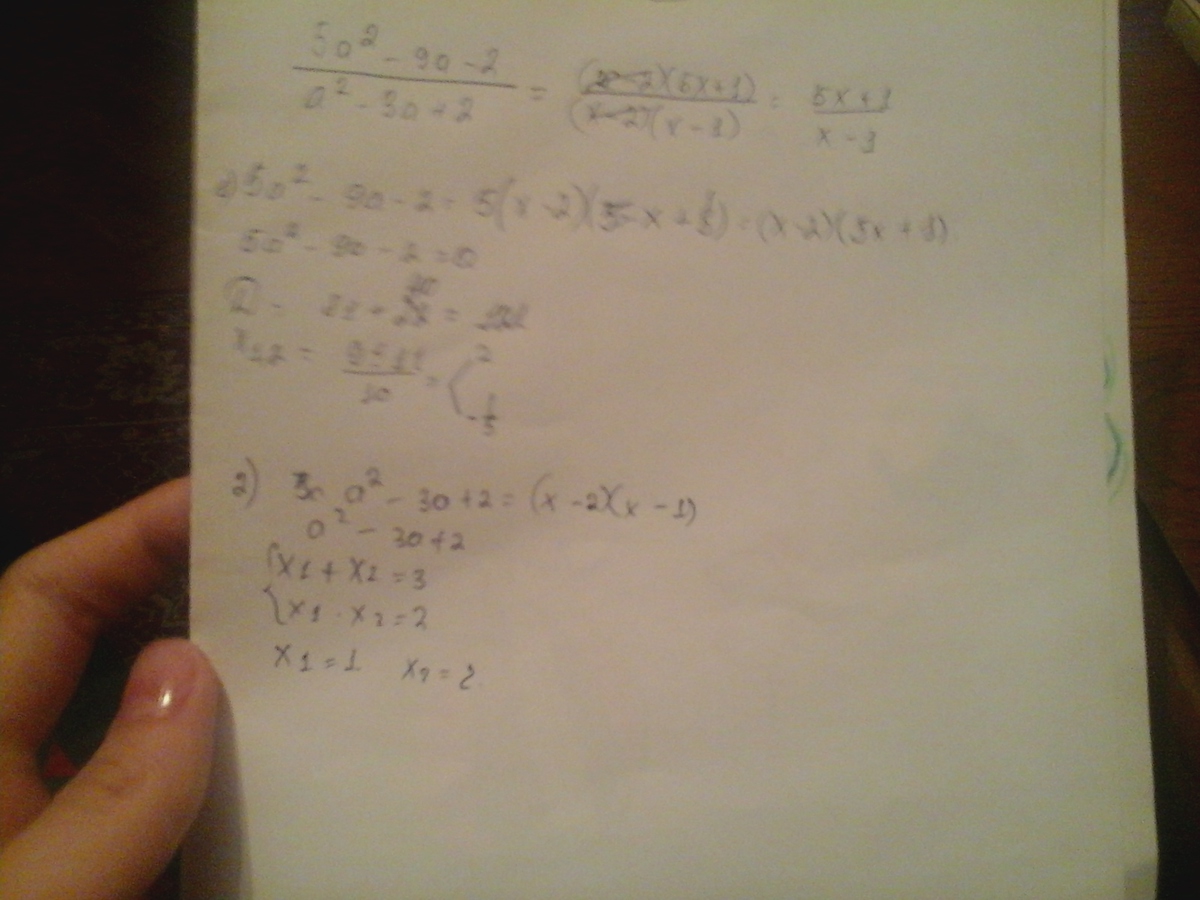 5a² - 9a - 2 / a² - 3a + 2 = (x-2)(5x+1) / (x-2)(x-1) = 5x+1 / x-1
1) 5a² - 9a - 2 = 5(x-2)(x + 1/5) = (x-2)(5x+1)
5a² - 9a - 2 = 0
D = 81 + 40 = 121
x1,2 = 9±11 / 10 = 2 -1/5
2) a² - 3a + 2 = (x-2)(x-1)
a² - 3a + 2
x1 + x2 = 3
x1 · x2 = 2
x1 = 1 x2 = 2